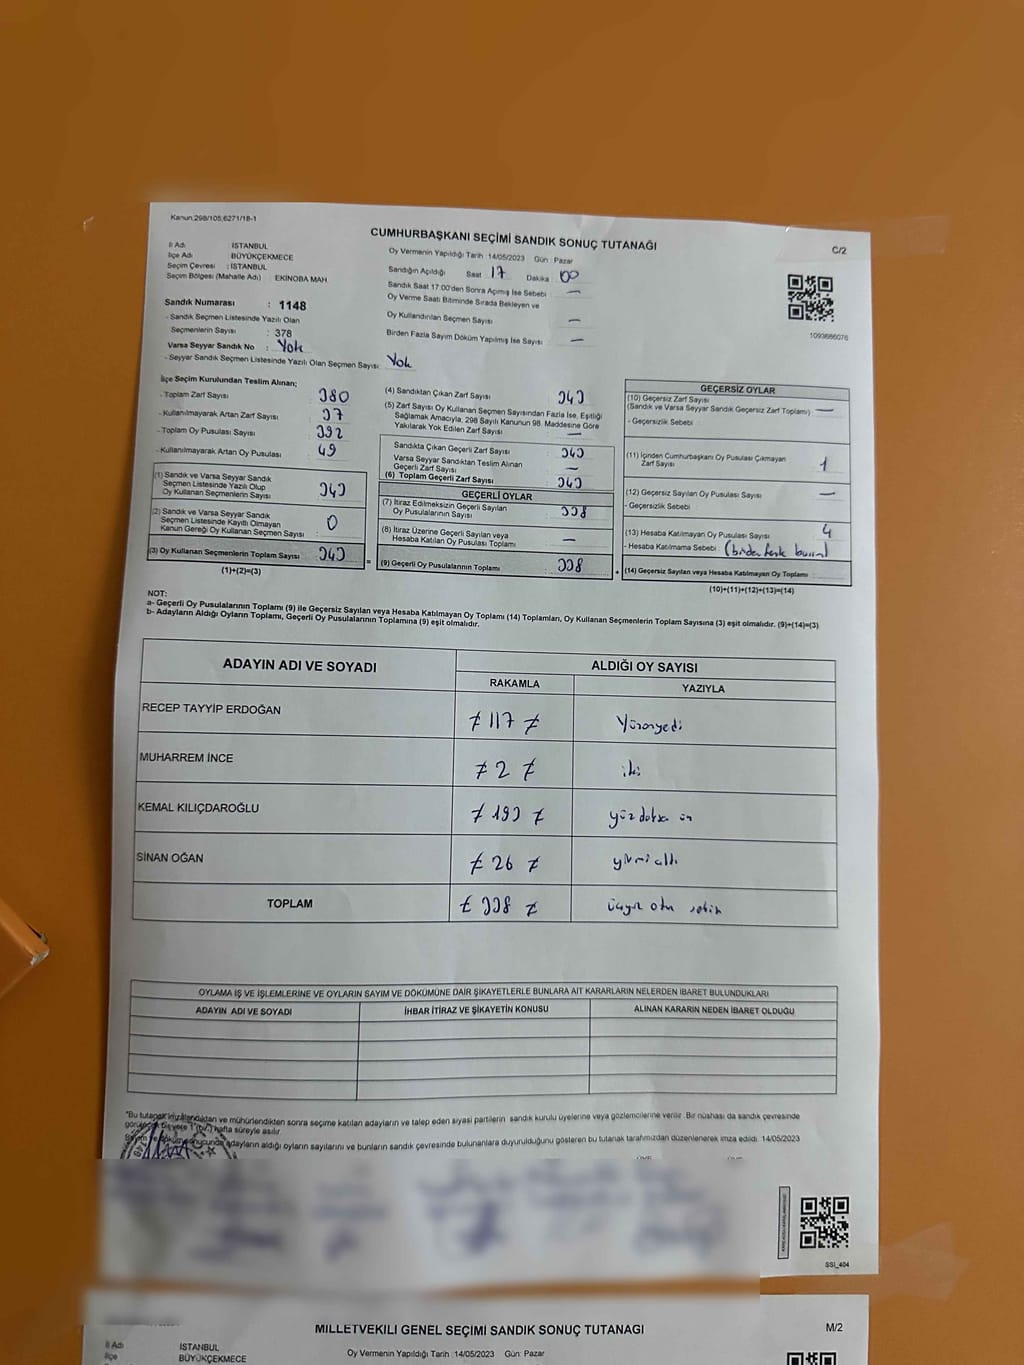 Kanun:298/105;6271/18-1
CUMHURBAŞKANI SEÇİMİ SANDIK SONUÇ TUTANAĞI
C/2
İl Adı İSTANBUL
İlçe Adı BÜYÜKÇEKMECE
Seçim Çevresi : İSTANBUL
Seçim Bölgesi (Mahalle Adı) : EKİNOBA MAH
Sandık Numarası : 1148
- Sandık Seçmen Listesinde Yazılı Olan
Seçmenlerin Sayısı : 378
Varsa Seyyar Sandık No : Yok
- Seyyar Sandık Seçmen Listesinde Yazılı Olan Seçmen Sayısı: Yok
Oy Vermenin Yapıldığı Tarih :14/05/2023 Gün : Pazar
Sandığın Açıldığı Saat 17 Dakika 00
Sandık Saat 17.00'den Sonra Açılmış İse Sebebi —
Oy Verme Saati Bitiminde Sırada Bekleyen ve
Oy Kullandırılan Seçmen Sayısı —
Birden Fazla Sayım Döküm Yapılmış İse Sayısı —
1093686076
İlçe Seçim Kurulundan Teslim Alınan;
- Toplam Zarf Sayısı : 380
- Kullanılmayarak Artan Zarf Sayısı : 37
- Toplam Oy Pusulası Sayısı : 392
- Kullanılmayarak Artan Oy Pusulası : 49
(1) Sandık ve Varsa Seyyar Sandık
Seçmen Listesinde Yazılı Olup
Oy Kullanan Seçmenlerin Sayısı : 343
(2) Sandık ve Varsa Seyyar Sandık
Seçmen Listesinde Kayıtlı Olmayan
Kanun Gereği Oy Kullanan Seçmen Sayısı : 0
(3) Oy Kullanan Seçmenlerin Toplam Sayısı : 343
(1)+(2)=(3)
(4) Sandıktan Çıkan Zarf Sayısı : 343
(5) Zarf Sayısı Oy Kullanan Seçmen Sayısından Fazla İse, Eşitliği
Sağlamak Amacıyla, 298 Sayılı Kanunun 98. Maddesine Göre
Yakılarak Yok Edilen Zarf Sayısı : —
Sandıkta Çıkan Geçerli Zarf Sayısı : 343
Varsa Seyyar Sandıktan Teslim Alınan
Geçerli Zarf Sayısı : —
(6) Toplam Geçerli Zarf Sayısı : 343
GEÇERLİ OYLAR
(7) İtiraz Edilmeksizin Geçerli Sayılan
Oy Pusulalarının Sayısı : 338
(8) İtiraz Üzerine Geçerli Sayılan veya
Hesaba Katılan Oy Pusulası Toplamı : —
(9) Geçerli Oy Pusulalarının Toplamı : 338
GEÇERSİZ OYLAR
(10) Geçersiz Zarf Sayısı
(Sandık ve Varsa Seyyar Sandık Geçersiz Zarf Toplamı) : —
- Geçersizlik Sebebi
(11) İçinden Cumhurbaşkanı Oy Pusulası Çıkmayan
Zarf Sayısı : 1
(12) Geçersiz Sayılan Oy Pusulası Sayısı : —
- Geçersizlik Sebebi
(13) Hesaba Katılmayan Oy Pusulası Sayısı : 4
- Hesaba Katılmama Sebebi :
(14) Geçersiz Sayılan veya Hesaba Katılmayan Oy Toplamı :
(10)+(11)+(12)+(13)=(14)
NOT:
a- Geçerli Oy Pusulalarının Toplamı (9) ile Geçersiz Sayılan veya Hesaba Katılmayan Oy Toplamı (14) Toplamları, Oy Kullanan Seçmenlerin Toplam Sayısına (3) eşit olmalıdır. (9)+(14)=(3)
b- Adayların Aldığı Oyların Toplamı, Geçerli Oy Pusulalarının Toplamına (9) eşit olmalıdır.
ADAYIN ADI VE SOYADI ALDIĞI OY SAYISI
RAKAMLA YAZIYLA
RECEP TAYYİP ERDOĞAN ≠ 117 ≠ Yüzonyedi
MUHARREM İNCE ≠ 2 ≠ iki
KEMAL KILIÇDAROĞLU ≠ 193 ≠ yüz doksan üç
SİNAN OĞAN ≠ 26 ≠ yirmi altı
TOPLAM ≠ 338 ≠ üçyüz otuz sekiz
OYLAMA İŞ VE İŞLEMLERİNE VE OYLARIN SAYIM VE DÖKÜMÜNE DAİR ŞİKAYETLERLE BUNLARA AİT KARARLARIN NELERDEN İBARET BULUNDUKLARI
ADAYIN ADI VE SOYADI İHBAR İTİRAZ VE ŞİKAYETİN KONUSU ALINAN KARARIN NEDEN İBARET OLDUĞU
"Bu tutanak imzalandıktan ve mühürlendikten sonra seçime katılan adayların ve talep eden siyasi partilerin sandık kurulu üyelerine veya gözlemcilerine verilir. Bir nüshası da sandık çevresinde
hafta süreyle asılır.
adayların aldığı oyların sayılarını ve bunların sandık çevresinde bulunanlara duyurulduğunu gösteren bu tutanak tarafımızdan düzenlenerek imza edildi. 14/05/2023
SSİ_404
MİLLETVEKİLİ GENEL SEÇİMİ SANDIK SONUÇ TUTANAĞI
M/2
İl Adı İSTANBUL
İlçe BÜYÜKÇEKMECE
Oy Vermenin Yapıldığı Tarih :14/05/2023 Gün: Pazar